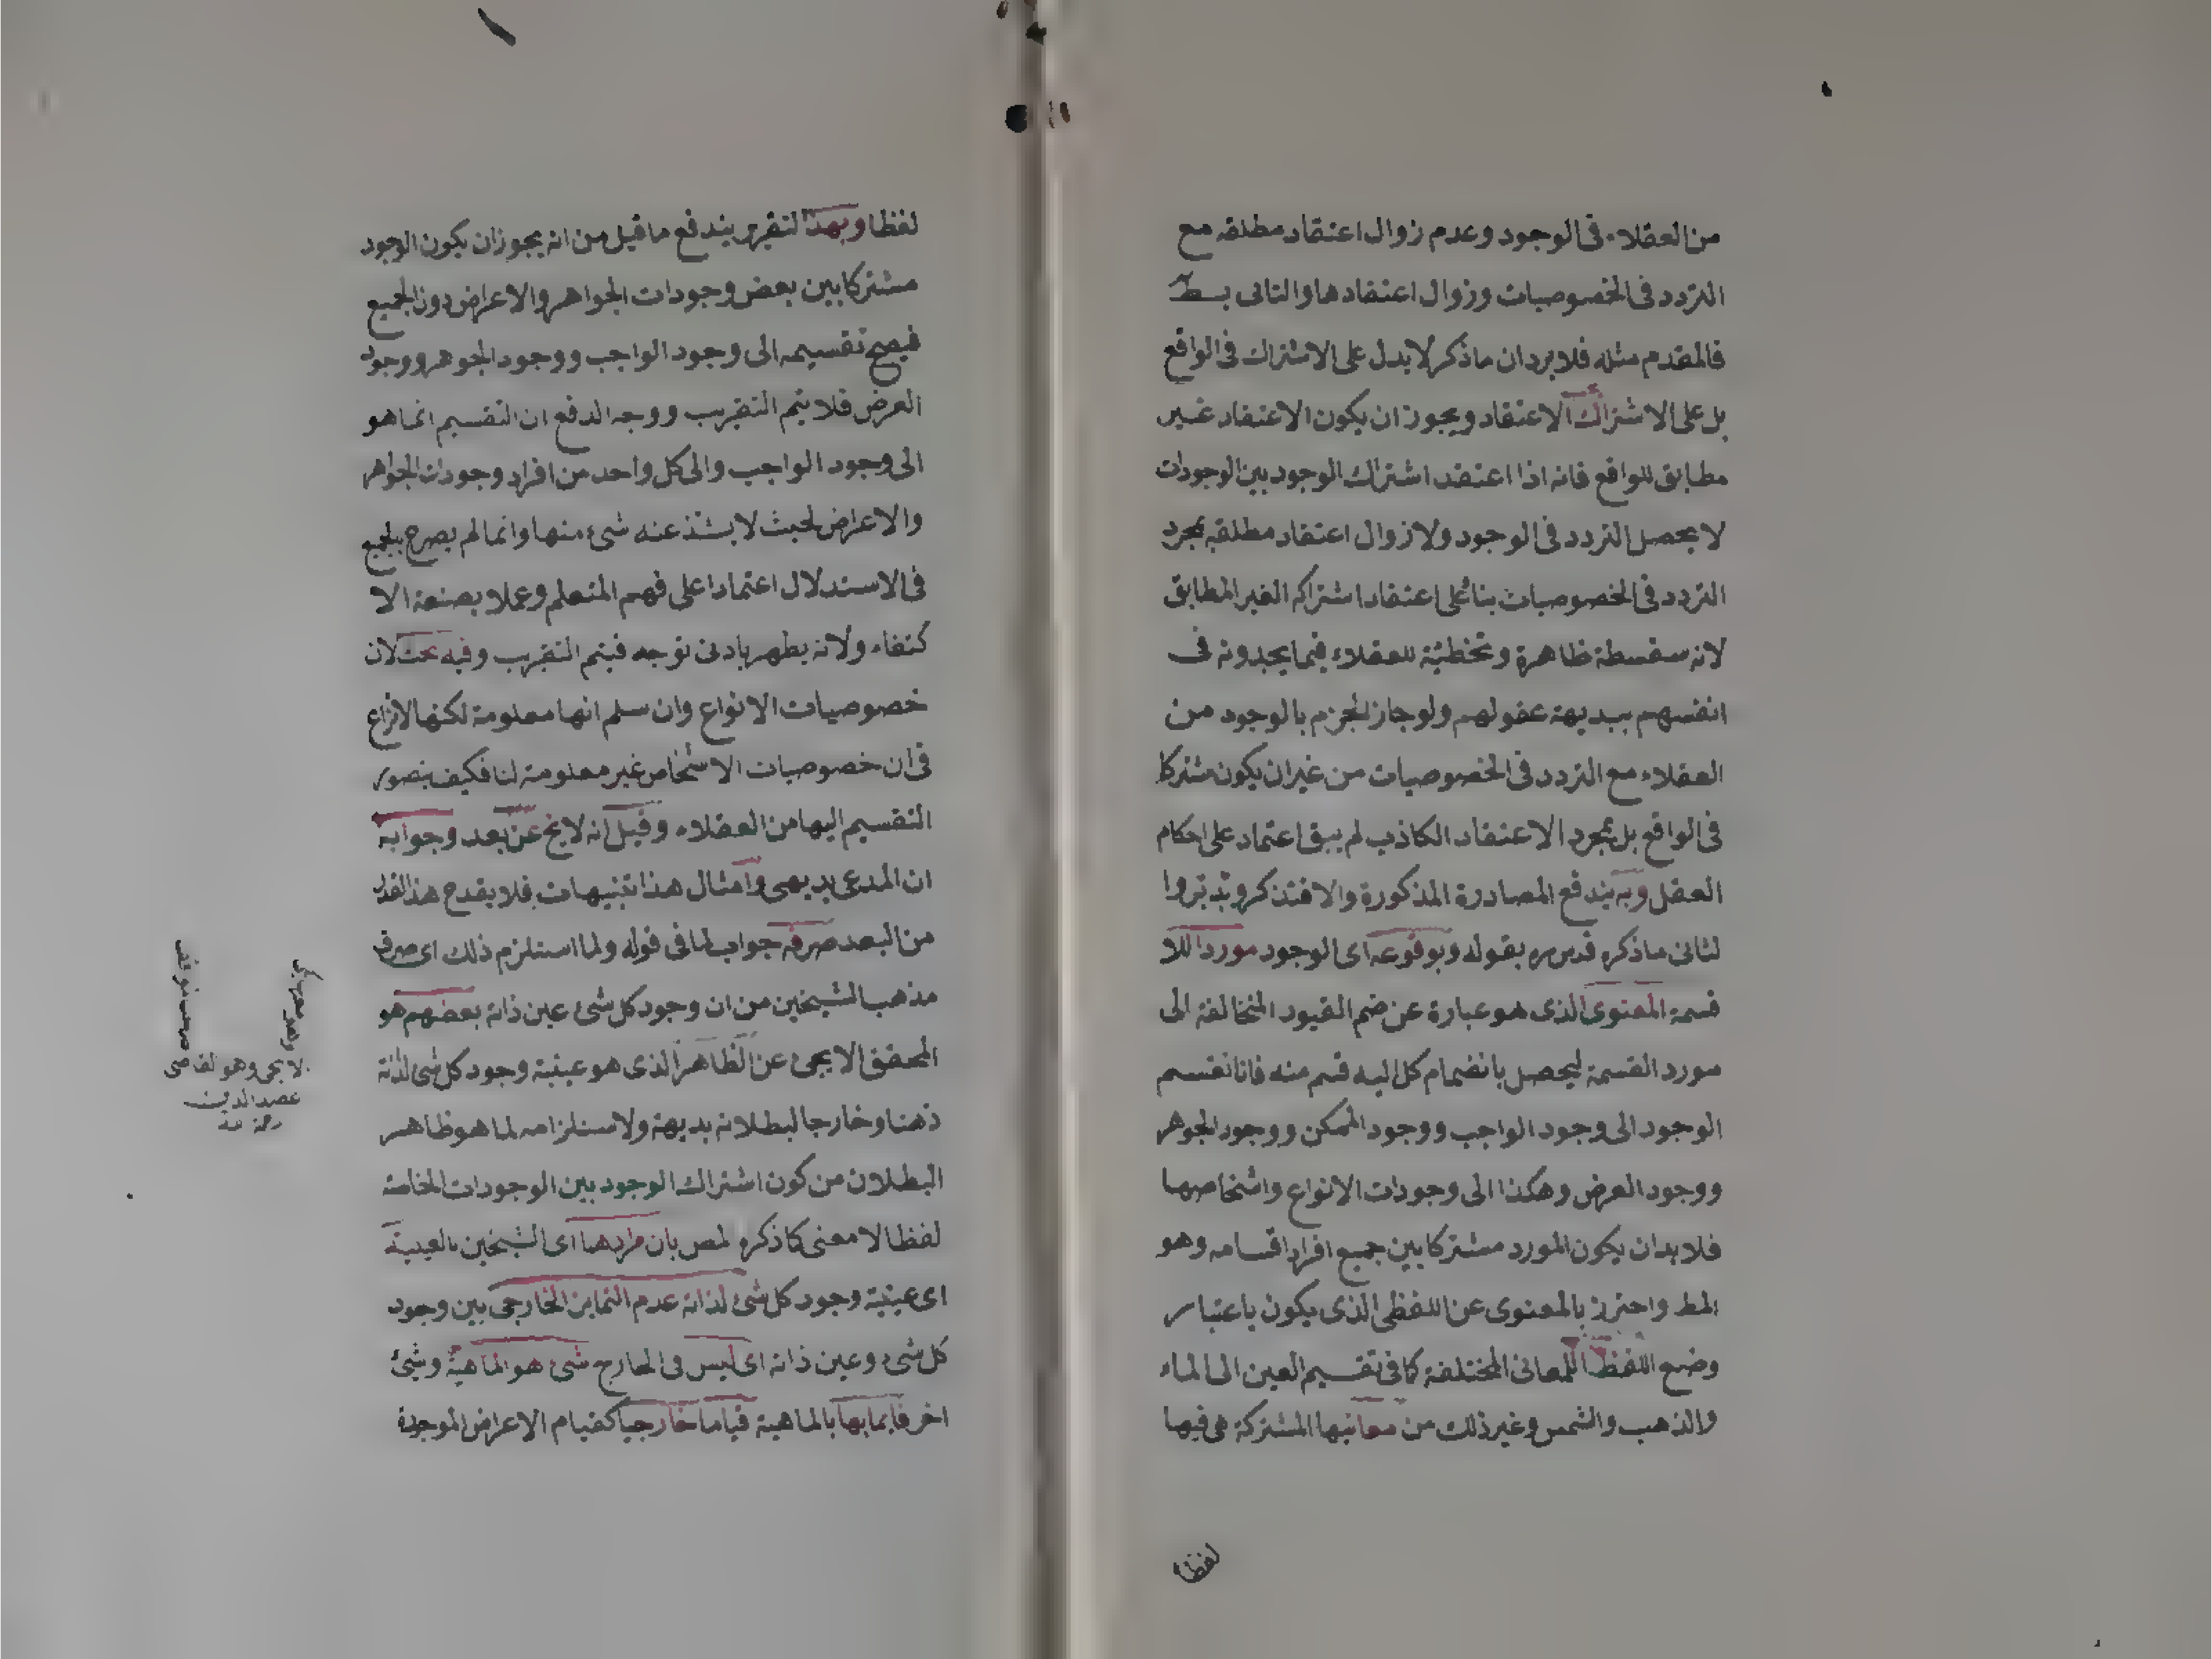 من العقلاء فى الوجود وعدم زوال اعتقاد مطلقه مع
التردد فى الخصوصيات وزوال اعتقادها والتالى بط
فالمقدم مثله فلا يرد ان ما ذكر لا يدل على الاشتراك فى الواقع
بل على الاشتراك الاعتقاد ويجوز ان يكون الاعتقاد غير
مطابق للواقع فانه اذا اعتقد اشتراك الوجود بين الوجودات
لا يحصل التردد فى الوجود ولا زوال اعتقاد مطلقه بمجرد
التردد فى الخصوصيات بناء على اعتقاد اشتراكه الغير المطابق
لانه سفسطة ظاهرة وتخطئة للعقلاء فيما يجدونه فى
انفسهم ببديهة عقولهم ولو جاز الجزم بالوجود من
العقلاء مع التردد فى الخصوصيات من غير ان يكون مشتركا
فى الواقع بل بمجرد الاعتقاد الكاذب لم يبق اعتماد على احكام
العقل وبه يندفع المصادرة المذكورة والا فتذكر وتدبروا
لثانى ما ذكره قدس سره بقوله وبوقوعه اى الوجود موردا للا
قسمة المعنوى الذى هو عبارة عن ضم القيود المتخالفة الى
مورد القسمة ليحصل بانضمام كل اليه قسم منه فانا نقسم
الوجود الى وجود الواجب ووجود الممكن ووجود الجوهر
ووجود العرض وهكذا الى وجودات الانواع واشخاصها
فلا بد ان يكون المورد مشتركا بين جميع افراد اقسامه وهو
المط واحترز بالمعنوى عن اللفظى الذى يكون باعتبار
وضع اللفظ للمعانى المختلفة كما فى تقسيم العين الى الماء
والذهب والشمس وغير ذلك من معانيها المشتركة هى فيها
لفظا
لفظا وبهذا التقرير يندفع ما قيل من انه يجوز ان يكون الوجود
مشتركا بين بعض وجودات الجواهر والاعراض دون الجميع
فيصح تقسيمه الى وجود الواجب ووجود الجوهر ووجود
العرض فلا يتم التقريب ووجه الدفع ان التقسيم انما هو
الى وجود الواجب والى كل واحد من افراد وجودات الجواهر
والاعراض بحيث لا يشذ عنه شئ منها وانما لم يصرح بالجميع
فى الاستدلال اعتمادا على فهم المتعلم وعملا بصنعة الا
كتفاء ولانه يظهر بادنى توجه فيتم التقريب وفيه بحث لان
خصوصيات الانواع وان سلم انها معلومة لكنها لا نزاع
فى ان خصوصيات الاشخاص غير معلومة لنا فكيف يتصور
التقسيم اليها من العقلاء وقيل انه لا يخ عن بعد وجوابه
ان المدعى بديهى وامثال هذا تنبيهات فلا يقدح هذا القدر
من البعد صرفه جواب لما فى قوله ولما استلزم ذلك اى صرف
مذهب الشيخين من ان وجود كل شئ عين ذاته بعضهم هو
المحقق الايجى عن الظاهر الذى هو عينية وجود كل شئ لذاته
ذهنا وخارجا لبطلانه بديهة ولاستلزامه لما هو ظاهر
البطلان من كون اشتراك الوجود بين الوجودات الخاصة
لفظا لا معنى كما ذكره المص بان مرادهما اى الشيخين بالعينية
اى عينية وجود كل شئ لذاته عدم التمايز الخارجى بين وجود
كل شئ وعين ذاته اى ليس فى الخارج شئ هو الماهية وشئ
اخر قائما بها بالماهية قياما خارجيا كقيام الاعراض الموجودة
صاحب مواقف
لا يجى وهو القاضى
عضد الدين